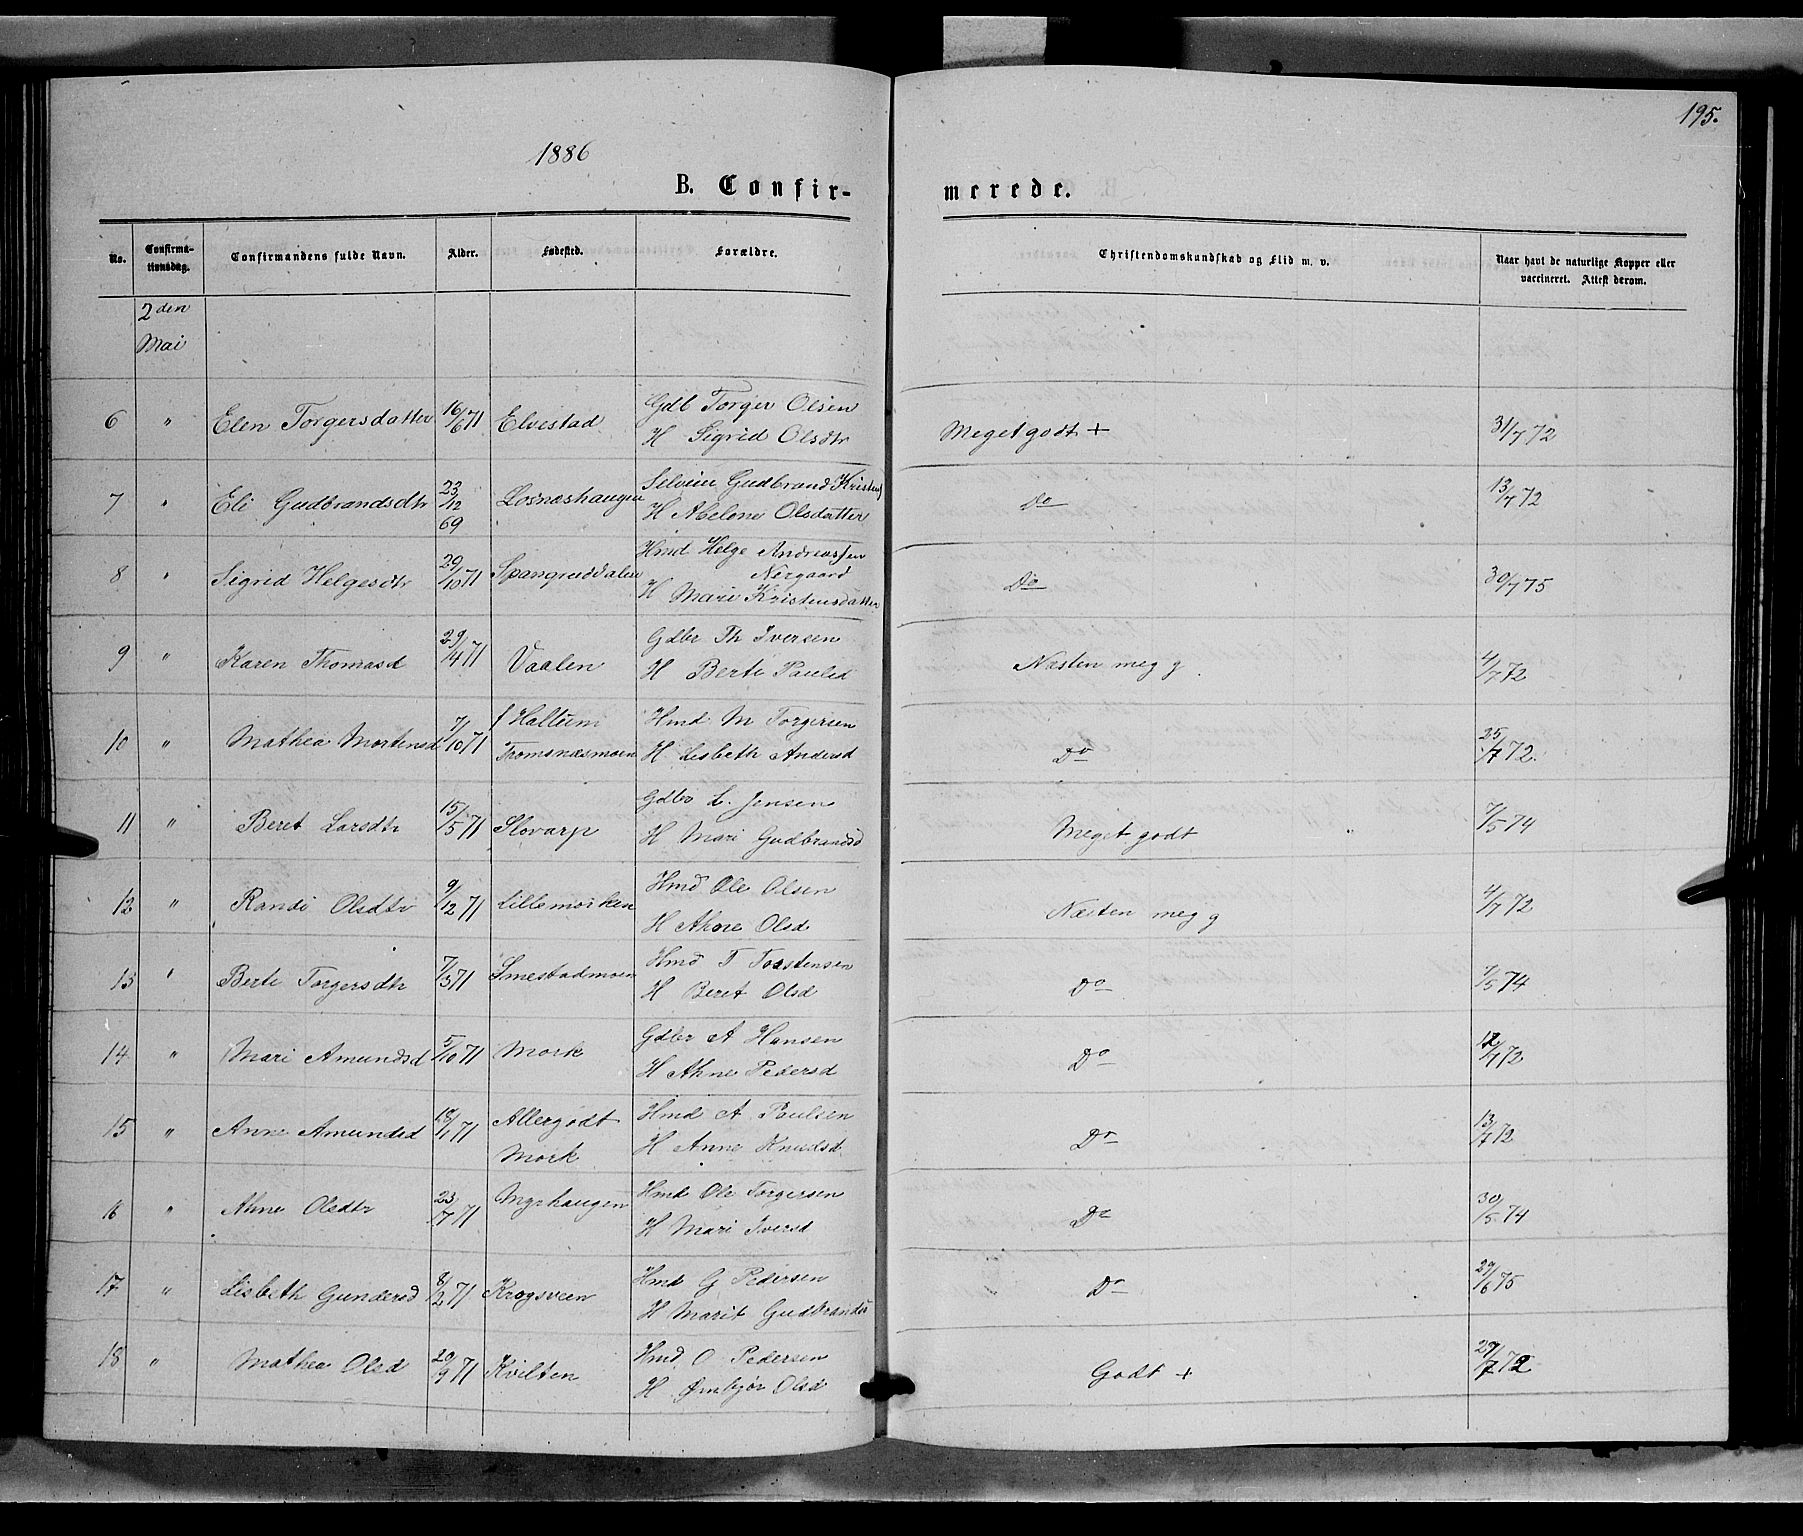 195.
1886
B. Confir- merede.
No. Confirma-tionsdag. Confirmandens fulde Navn. Alder. Fødested. Forældre. Christendomskundskab og Flid m. v. Naar havt de naturlige Kopper eller vaccineret. Attest derom.
2den
Mai
6 " Elen Torgersdatter 16/6 71 Elvestad Gdb Torger Olsen
H Sigrid Olsdtr Meget godt + 31/7 72
7 " Eli Gudbrandsdtr 23/12 69 Losnæshaugen Selveier Gudbrand Kristens
H Abelone Olsdatter Do 13/7 72
8 " Sigrid Helgesdtr 29/10 71 Spangruddalen Hmd Helge Andreassen
Nergaard
H Mari Kristensdatter Do 30/7 75
9 " Karen Thomasd 29/4 71 Vaalen Gdbr Th Iversen
H Berte Paulsd Næsten meg g. 4/7 72
10 " Mathea Mortensd 7/10 71 f Haltum
Tromsnæsmoen Hmd M Torgersen
H Lisbeth Andersd Do 25/7 72.
11 " Beret Larsdtr 15/5 71 Slovarp Gdbr L. Jensen
H Mari Gudbrandsd Meget godt 7/5 74
12 " Randi Olsdtr 9/12 71 Lillemorken Hmd Ole Olsen
H Ahne Olsd Næsten meg g 4/7 72
13 " Berte Torgersdtr 7/3 71 Smestadmoen Hmd T Torstensen
H Beret Olsd Do 7/5 74
14 " Mari Amundsd 5/10 71 Mork Gdbr A Hansen
H Ahne Pedersd Do 12/7 72
15 " Anne Amundsd 18/1 71 Allergodt
Mork Hmd A Paulsen
H Anne Knudsd Do 13/7 72
16 " Ahne Olsdtr 23/7 71 Myrhaugen Hmd Ole Torgersen
H Mari Iversd Do 30/5 74
17 " Lisbeth Gundersd 8/2 71 Krogsveen Hmd G Pedersen
H Marit Gudbrandsd Do 29/6 75
18 " Mathea Olsd 20/9 71 Kvilten Hmd O Pedersen
H Ørnbjør Olsd Godt + 29/7 72